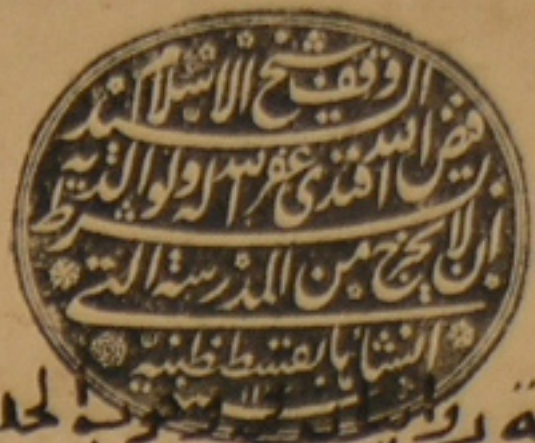 وقف شيخ الاسلام السيد
فيض الله افندى غفر الله له ولوالديه
بشرط ان لا يخرج من المدرسة التى
انشاها بقسطنطنيه
سنه ١١